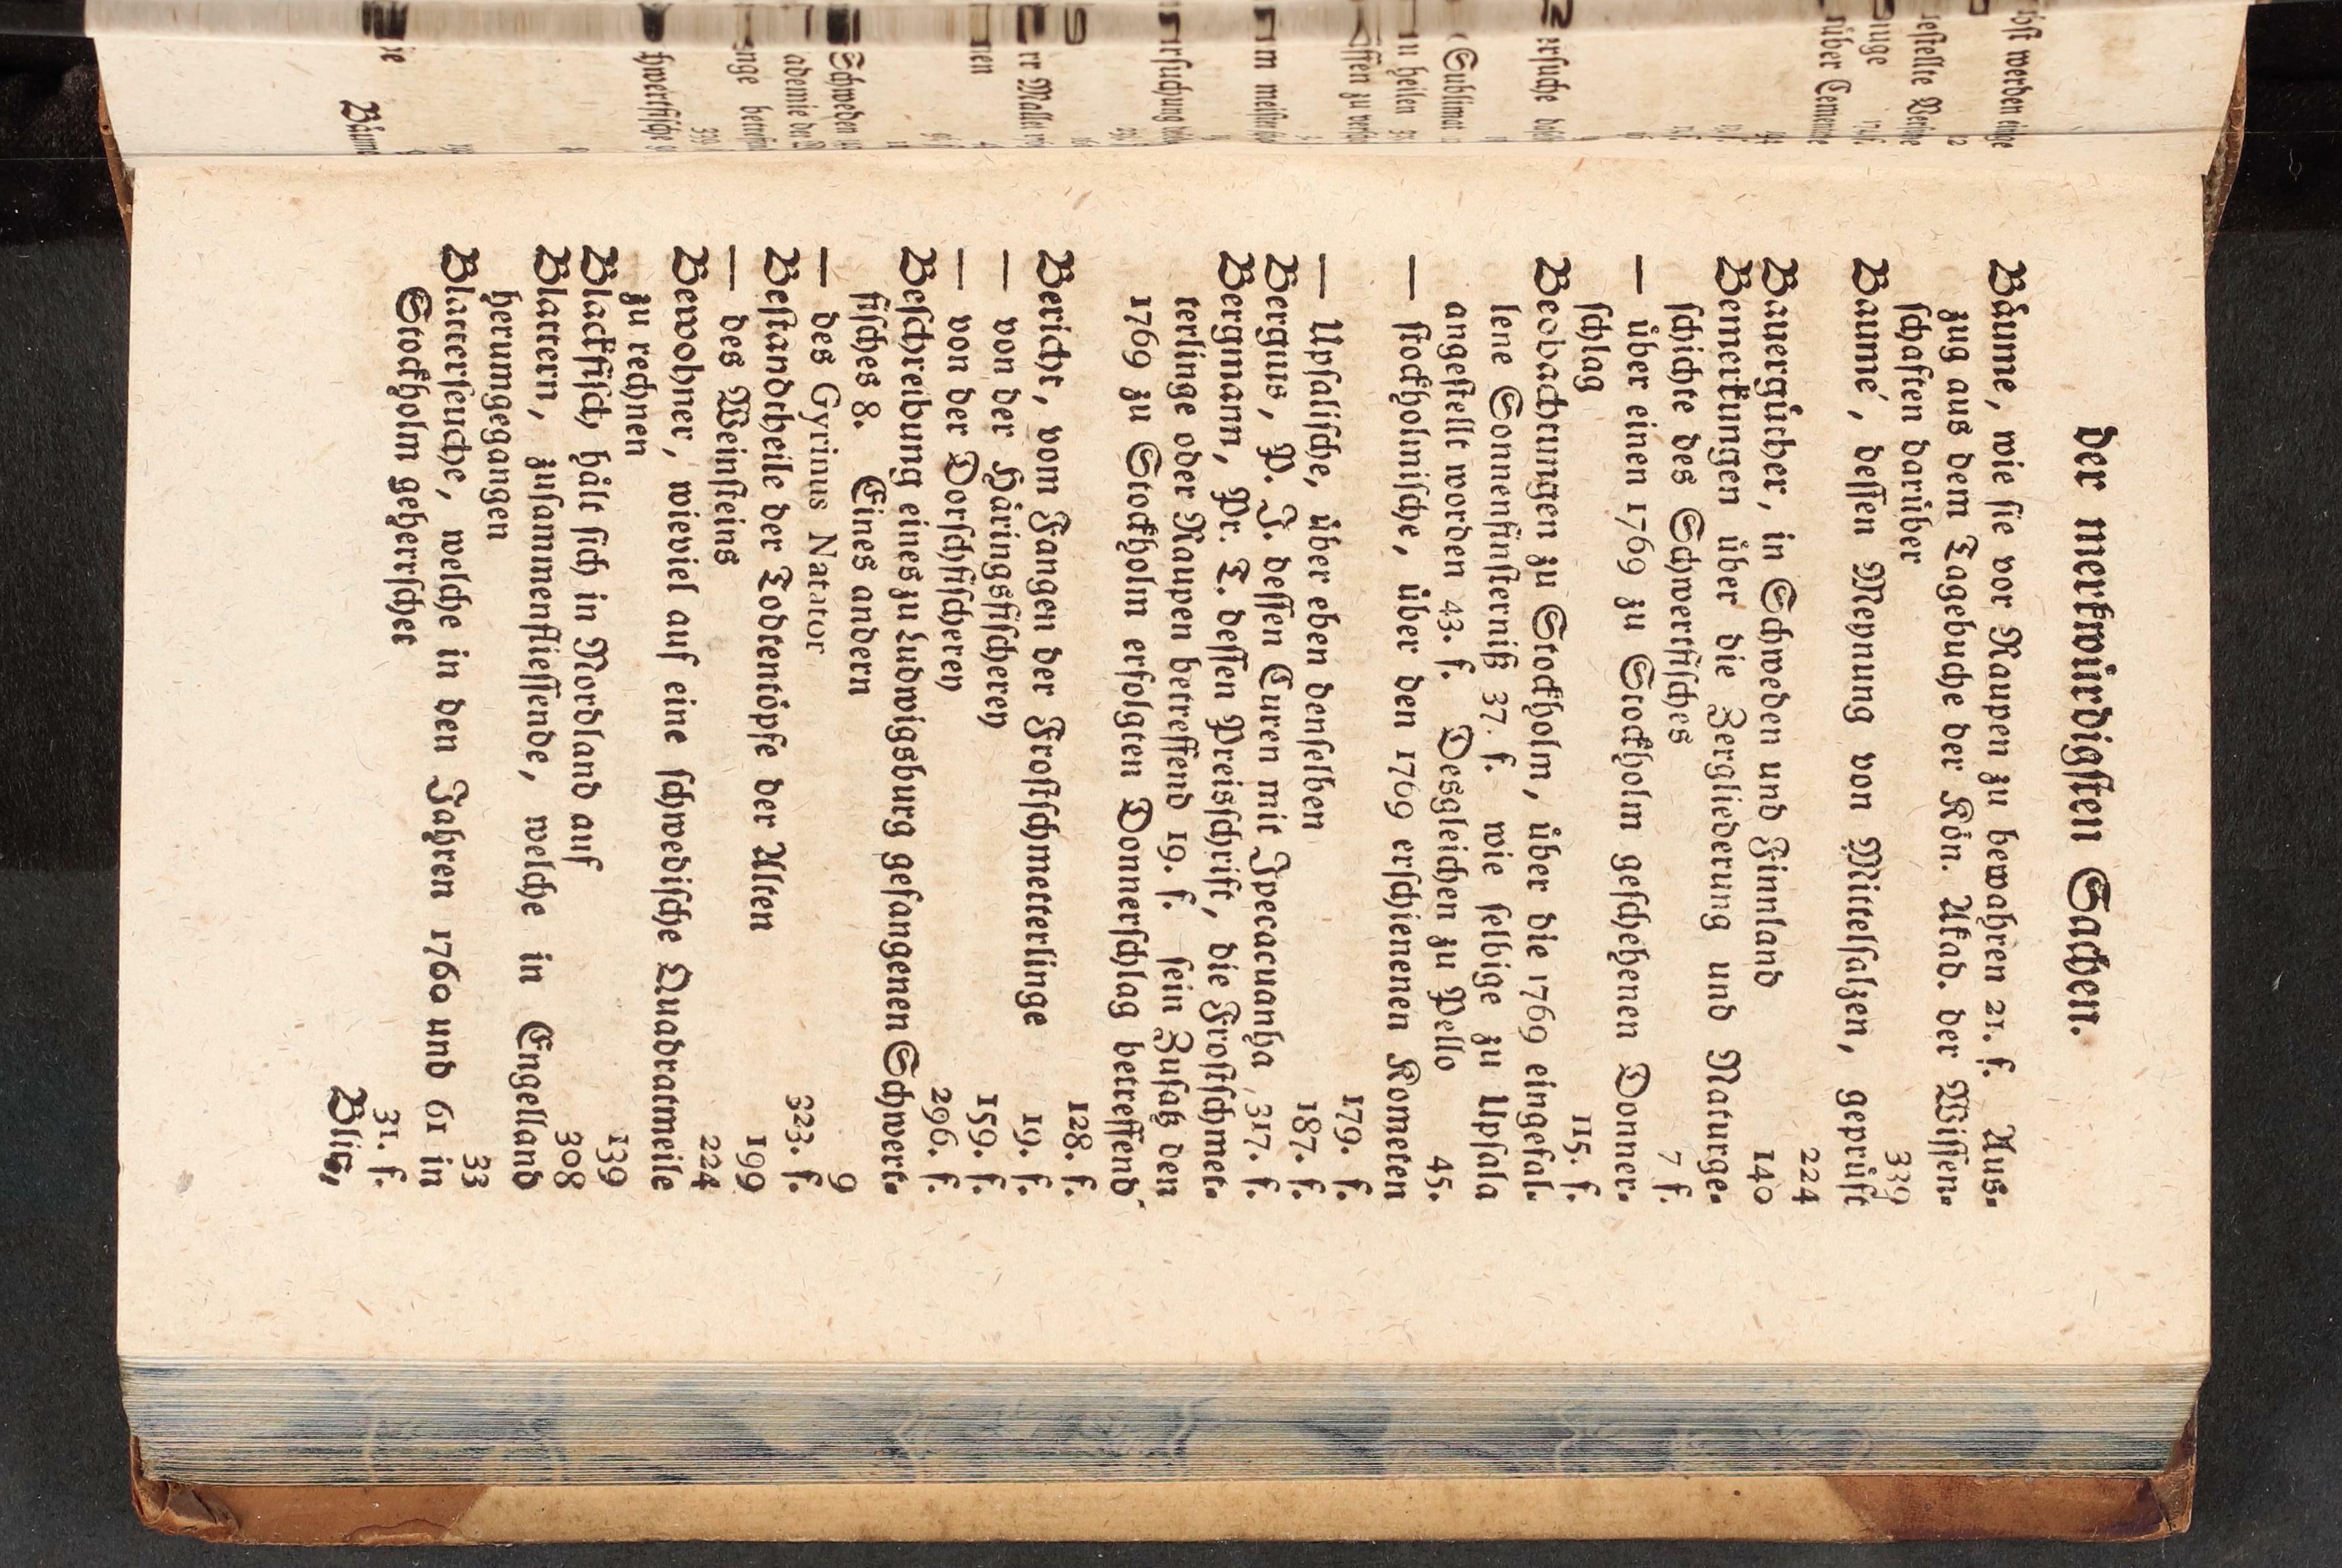 der merkwürdigsten Sachen.
Bäume, wie sie vor Raupen zu bewahren 21. f. Aus-
zug aus dem Tagebuche der Kön. Akad. der Wissen-
schaften darüber 339
Baumé, dessen Meynung von Mittelsalzen, geprüft
224
Bauergüther, in Schweden und Finnland 140
Bemerkungen über die Zergliederung und Naturge-
schichte des Schwertfisches 7 f.
— über einen 1769 zu Stockholm geschehenen Donner-
schlag 115. f.
Beobachtungen zu Stockholm, über die 1769 eingefal-
lene Sonnenfinsterniß 37. f. wie selbige zu Upsala
angestellt worden 43. f. Desgleichen zu Pello 45.
— stockholmische, über den 1769 erschienenen Kometen
179. f.
— Upsalische, über eben denselben 187. f.
Bergius, P. J. dessen Curen mit Ipecacuanha 317. f.
Bergmann, Pr. T. dessen Preisschrift, die Frostschmet-
terlinge oder Raupen betreffend 19. f. sein Zusatz den
1769 zu Stockholm erfolgten Donnerschlag betreffend
128. f.
Bericht, vom Fangen der Frostschmetterlinge 19. f.
— von der Häringsfischerey 159. f.
— von der Dorschfischerey 296. f.
Beschreibung eines zu Ludwigsburg gefangenen Schwert-
fisches 8. Eines andern 9
— des Gyrinus Natator 323. f.
Bestandtheile der Todtentöpfe der Alten 199
— des Weinsteins 224
Bewohner, wieviel auf eine schwedische Quadratmeile
zu rechnen 139
Blackfisch, hält sich in Nordland auf 308
Blattern, zusammenfliessende, welche in Engelland
herumgegangen 33
Blatterseuche, welche in den Jahren 1760 und 61 in
Stockholm geherrschet 31. f.
Blitz,